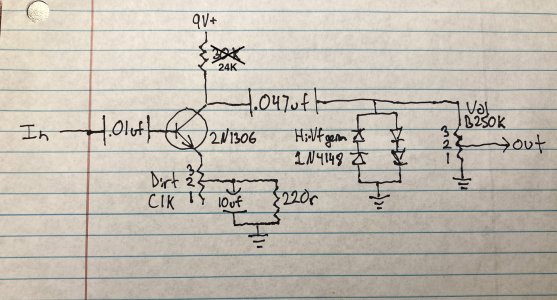 9V+
30K
24K
.047uf
In
.01uf
2N1306
Vol
B250K
3
2
1
out
Hi Vf germ
1N4148
Dirt
C1K
3
2
1
10uf
220r